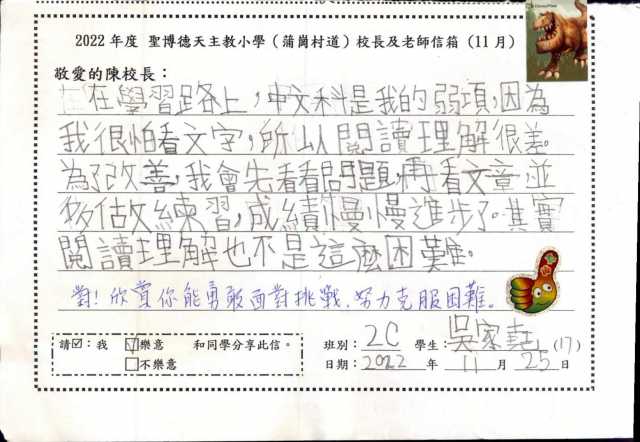 2022 年度 聖博德天主教小學（蒲崗村道）校長及老師信箱（11月）
敬愛的陳校長：
在學習路上，中文科是我的弱項，因為
我很怕看文字，所以閱讀理解很差。
為了改善，我會先看看問題，再看文章，並
多做練習，成績慢慢進步了。其實
閱讀理解也不是這麼困難。
對！欣賞你能勇敢面對挑戰，努力克服困難。
請☑：我 ☑樂意 和同學分享此信。 班別：2C 學生：吳家堯 (17)
□不樂意 日期：2022 年 11 月 25 日